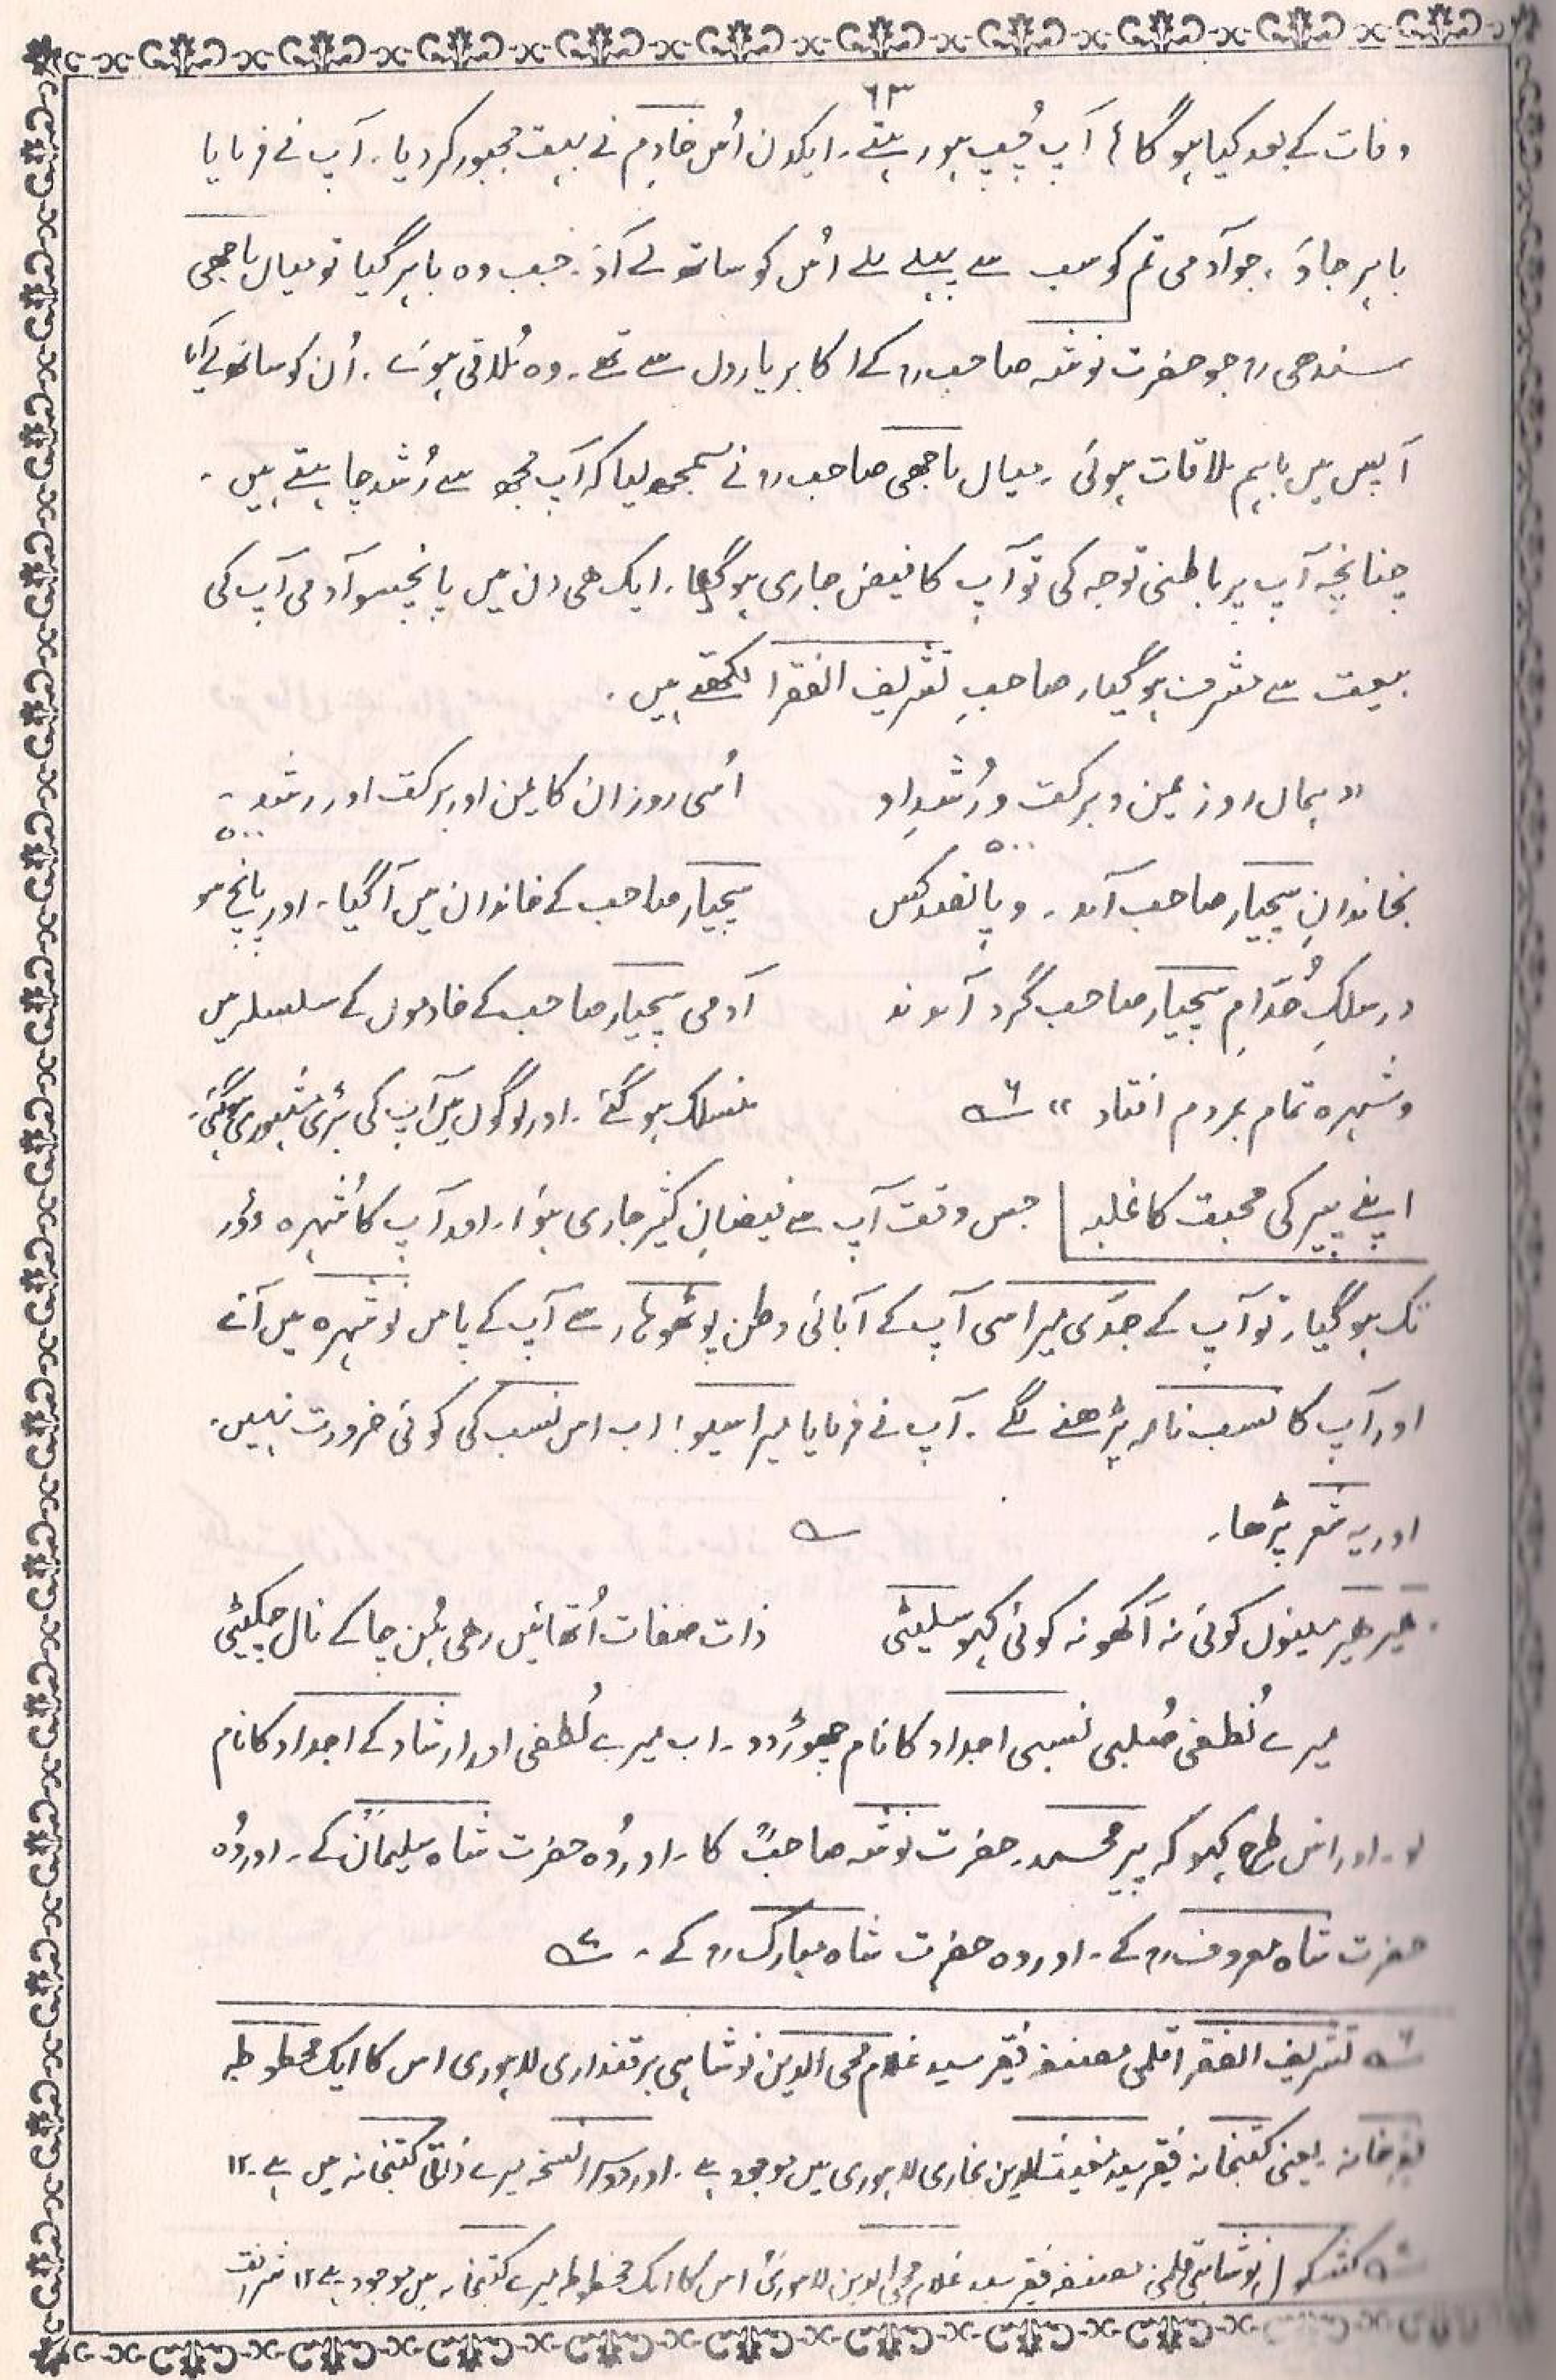 ٦٣
وفات کے بعد کیا ہوگا؟ آپ چُپ ہو رہتے۔ ایکدن اُس خادم نے بہت مجبور کر دیا۔ آپ نے فرمایا
باہر جاؤ، جو آدمی تم کو سب سے پہلے ملے اُس کو ساتھ لے آؤ۔ جب وہ باہر گیا تو میاں ماجھی
سندھی رح جو حضرت نوشہ صاحب رح کے اکابر یاروں سے تھے۔ وہ مُلاقی ہوئے۔ اُن کو ساتھ لے آیا
آپس میں باہم ملاقات ہوئی۔ میاں ماجھی صاحب رح نے سمجھ لیا کہ آپ مجھ سے رُشد چاہتے ہیں۔
چنانچہ آپ پر باطنی توجہ کی تو آپ کا فیض جاری ہو گیا۔ ایک ھی دن میں پانچسو آدمی آپ کی
بیعت سے مشرف ہو گیا۔ صاحبِ تشریف الفقرا لکھتے ہیں۔
"ہماں روز یمن و برکت و رُشدِ او
اُسی روز ان کا یمن اور برکت اور رشد۔
بخاندانِ سچیار صاحب آمد۔ و پانصد ۵۰۰ کس
سچیار صاحب کے خاندان میں آگیا۔ اور پانچ سو ۵۰۰
در سلکِ خُدّامِ سچیار صاحب گرد آمدند
آدمی سچیار صاحب کے خادموں کے سلسلہ میں
و شہرہ تمام بمردم افتاد" ٦؎
منسلک ہو گئے۔ اور لوگوں میں آپ کی بڑی مشہوری ہو گئی۔
اپنے پیر کی محبت کا غلبہ جس وقت آپ سے فیضانِ کثیر جاری ہؤا۔ اور آپ کا شُہرہ دُور
تک ہو گیا۔ تو آپ کے جدّی میراسی آپ کے آبائی وطن پوٹھوہار سے آپ کے پاس نوشہرہ میں آئے
اور آپ کا نسب نامہ پڑھنے لگے۔ آپ نے فرمایا میراسیو! اب اس نسب کی کوئی ضرورت نہیں۔
اور یہ شعر پڑھا۔ ؎
ھیر ھیر مینوں کوئی نہ آکھو نہ کوئی کہو سلیٹی
ذات صفات اُتھائیں رھی ہُن چاکے نال چکیٹی
میرے نُطفی صُلبی نسبی اجداد کا نام چھوڑ دو۔ اب میرے لُطفی اور ارشاد کے اجداد کا نام
لو۔ اور اس طرح کہو کہ پیر محمد۔ حضرت نوشہ صاحبؒ کا۔ اور وُہ حضرت شاہ سلیمانؒ کے۔ اور وُہ
حضرت شاہ معروف رح کے۔ اور وہ حضرت شاہ مبارک رح کے۔ ۷؎
٦؎ تشریف الفقرا قلمی مصنفہ فقیر سید غلام محی الدین نوشاہی برقندازی لاہوری اس کا ایک مخطوطہ
یعنی کتبخانہ فقیر سید مغیث الدین بخاری لاہوری میں موجود ہے۔ اور دوسرا نسخہ میرے ذاتی کتبخانہ میں ہے۔ ۱۲
کشکول نوشاہی قلمی مصنفہ فقیر سید غلام محی الدین لاہوری اس کا ایک مخطوطہ میرے کتبخانہ میں موجود ہے ۱۲ شرافت